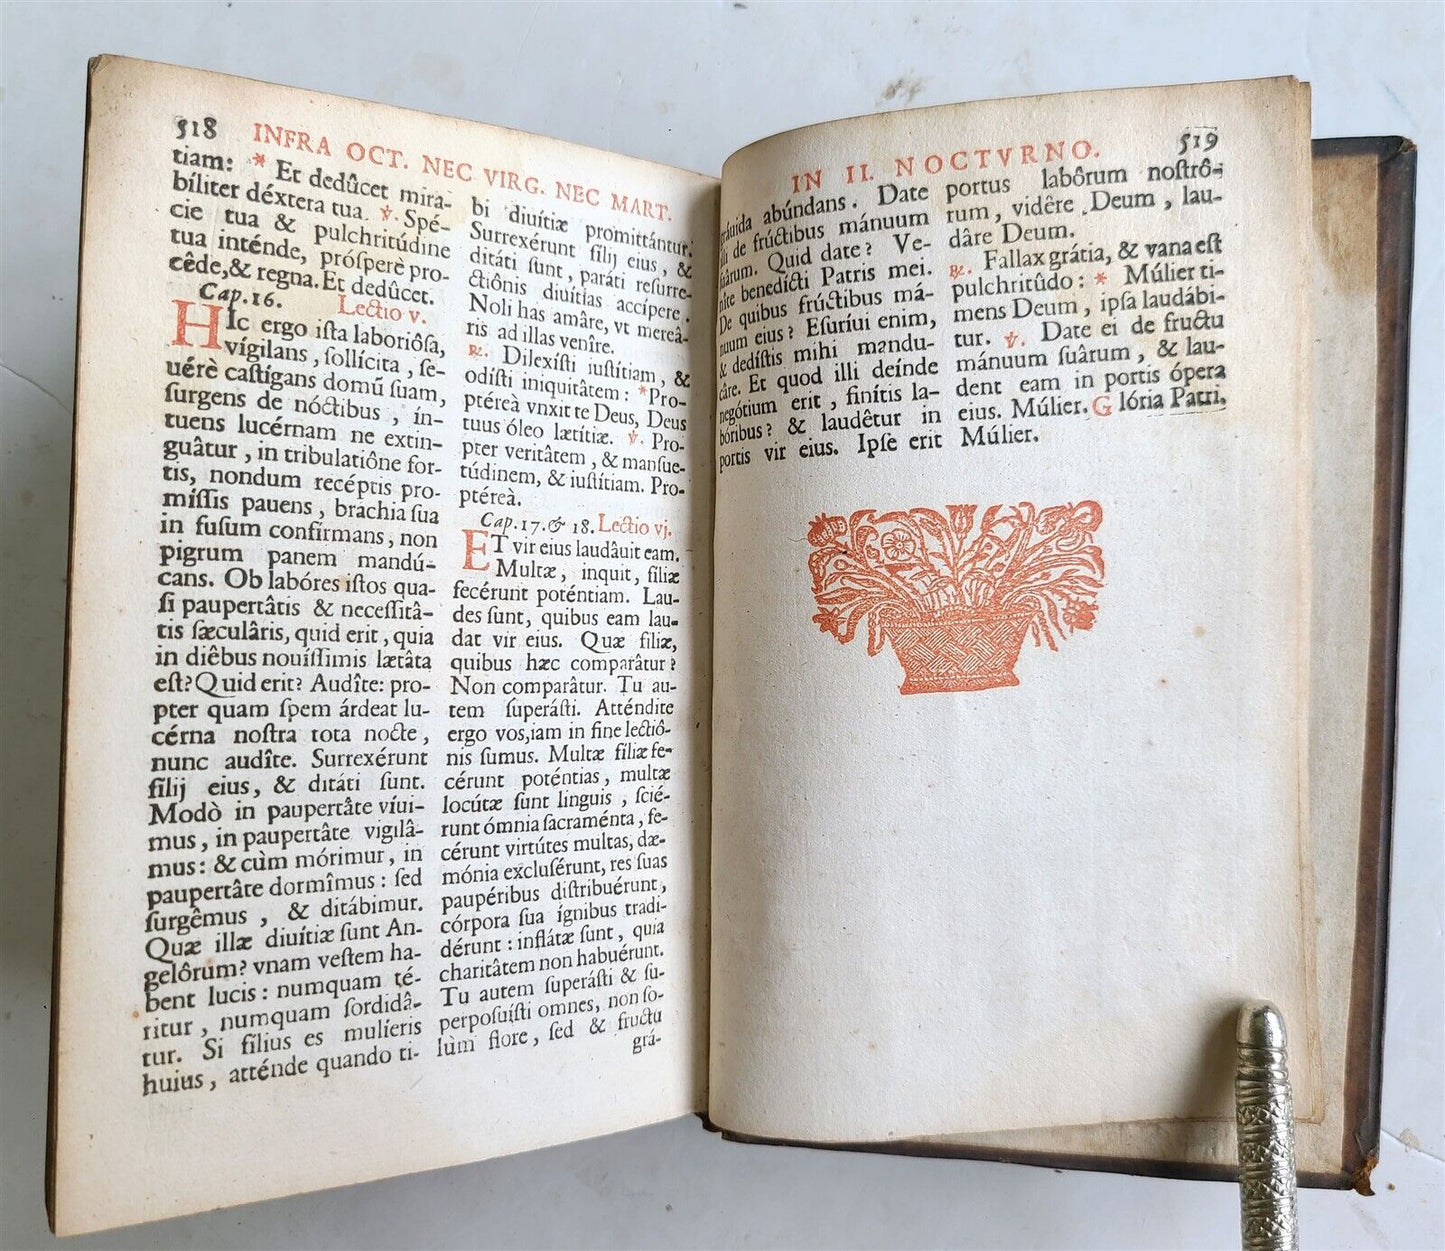 518 INFRA OCT. NEC VIRG. NEC MART.
tiam: * Et dedûcet mira-
bíliter déxtera tua. ℣. Spé-
cie tua & pulchritúdine
tua inténde, próſperè pro-
cêde,& regna. Et dedûcet.
Cap. 16. Lectio v.
HIc ergo iſta laboriôſa,
vígilans, ſollícita, ſe-
uérè caſtígans domũ ſuam,
ſurgens de nóctibus, in-
tuens lucérnam ne extin-
guâtur, in tribulatiône for-
tis, nondum recéptis pro-
miſſis pauens, brachia ſua
in fuſum confirmans, non
pigrum panem mandú-
cans. Ob labóres iſtos qua-
ſi paupertâtis & neceſſitâ-
tis ſæculâris, quid erit, quia
in diêbus nouíſſimis lætâta
eſt? Quid erit? Audîte: pro-
pter quam ſpem árdeat lu-
cérna noſtra tota nocte,
nunc audîte. Surrexérunt
filij eius, & ditáti ſunt.
Modò in paupertâte víui-
mus, in paupertâte vigilâ-
mus: & cùm mórimur, in
paupertâte dormîmus: ſed
ſurgêmus, & ditábimur.
Quæ illæ diuítiæ ſunt An-
gelôrum? vnam veſtem ha-
bent lucis: numquam té-
ritur, numquam ſordidâ-
tur. Si filius es mulíeris
huius, atténde quando ti-
bi diuítiæ promittántur.
Surrexérunt filij eius, &
ditáti ſunt, paráti reſurre-
ctiônis diuítias accípere.
Noli has amâre, vt mereâ-
ris ad illas venîre.
℟. Dilexíſti iuſtítiam, &
odíſti iniquitâtem: * Pro-
ptéreà vnxit te Deus, Deus
tuus óleo lætítiæ. ℣. Pro-
pter veritâtem, & manſue-
túdinem, & iuſtítiam. Pro-
ptéreà.
Cap. 17. & 18. Lectio vj.
ET vir eius laudâuit eam.
Multæ, inquit, fíliæ
fecérunt poténtiam. Lau-
des ſunt, quibus eam lau-
dat vir eius. Quæ fíliæ,
quibus hæc comparâtur?
Non comparâtur. Tu au-
tem ſuperáſti. Atténdite
ergo vos,iam in fine lectiô-
nis ſumus. Multæ fíliæ fe-
cérunt poténtias, multæ
locútæ ſunt linguis, ſcié-
runt ómnia ſacraménta, fe-
cérunt virtútes multas, dæ-
mónia excluſérunt, res ſuas
paupéribus diſtribuérunt,
córpora ſua ígnibus tradi-
dérunt: inflátæ ſunt, quia
charitâtem non habuérunt.
Tu autem ſuperáſti & ſu-
perpoſuíſti omnes, non ſo-
lùm flore, ſed & fructu
grá-
IN II. NOCTVRNO. 519
gráuida abúndans. Date
illi de frúctibus mánuum
ſuârum. Quid date? Ve-
nîte benedícti Patris mei.
De quibus frúctibus má-
nuum eius? Eſuríui enim,
& dedíſtis mihi mandu-
câre. Et quod illi deínde
negótium erit, finítis la-
bóribus? & laudêtur in
portis vir eius. Ipſe erit
portus labôrum noſtrô-
rum, vidêre Deum, lau-
dâre Deum.
℟. Fallax grátia, & vana eſt
pulchritûdo: * Múlier ti-
mens Deum, ipſa laudábi-
tur. ℣. Date ei de fructu
mánuum ſuârum, & lau-
dent eam in portis ópera
eius. Múlier. Glória Patri.
Múlier.